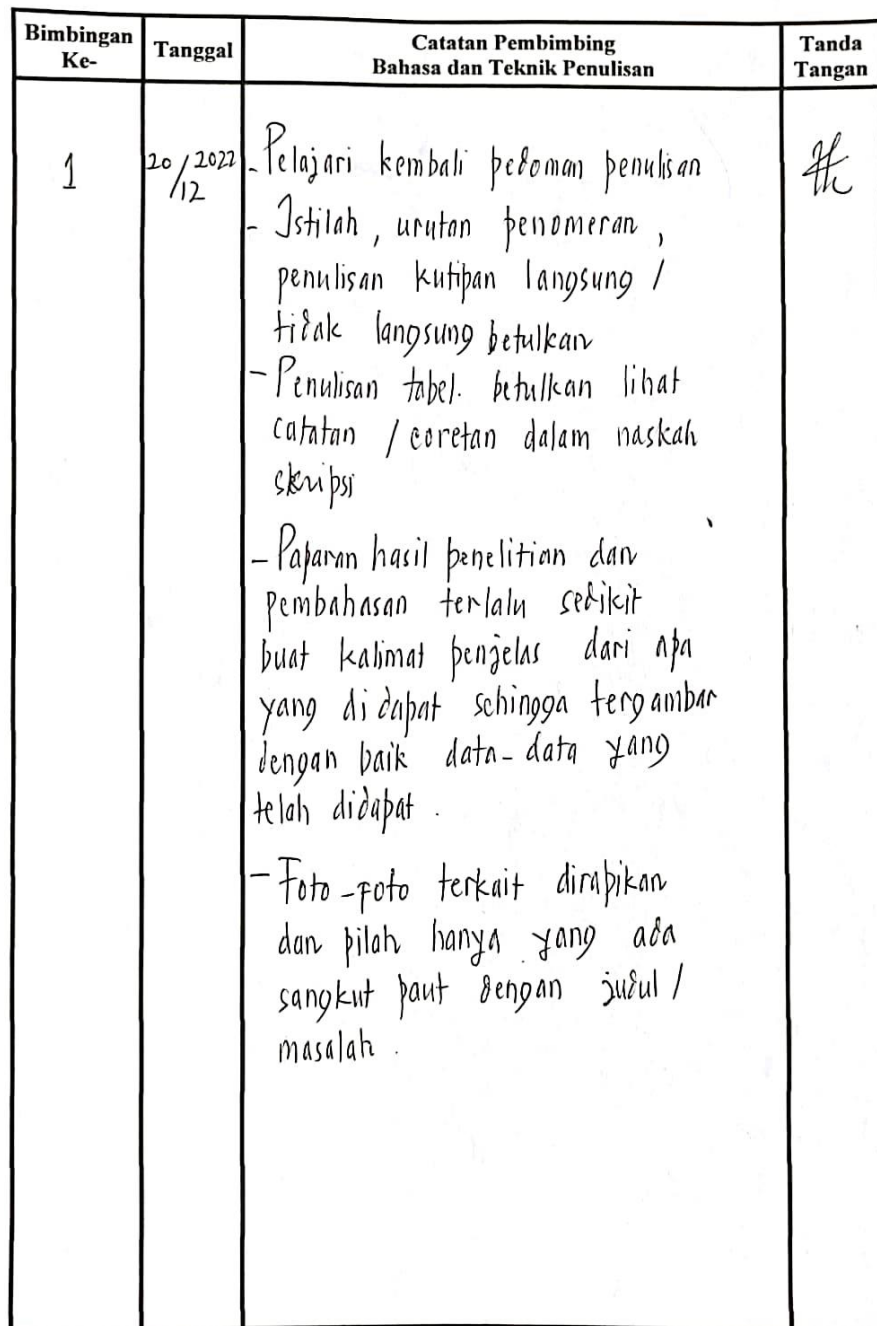 Bimbingan Ke-
Tanggal
Catatan Pembimbing
Bahasa dan Teknik Penulisan
Tanda Tangan
1
20/12 2022
- Pelajari kembali pedoman penulisan
- Istilah, urutan penomeran,
penulisan kutipan langsung /
tidak langsung betulkan
- Penulisan tabel. betulkan lihat
catatan / coretan dalam naskah
skripsi
- Paparan hasil penelitian dan
pembahasan terlalu sedikit
buat kalimat penjelas dari apa
yang di dapat sehingga tergambar
dengan baik data-data yang
telah didapat.
- Foto-foto terkait dirapikan
dan pilah hanya yang ada
sangkut paut dengan judul /
masalah.